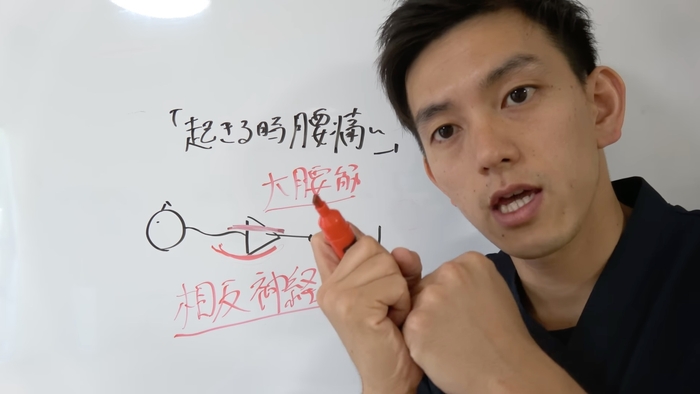 「起きる時腰痛〜」
大腰筋
相反神経